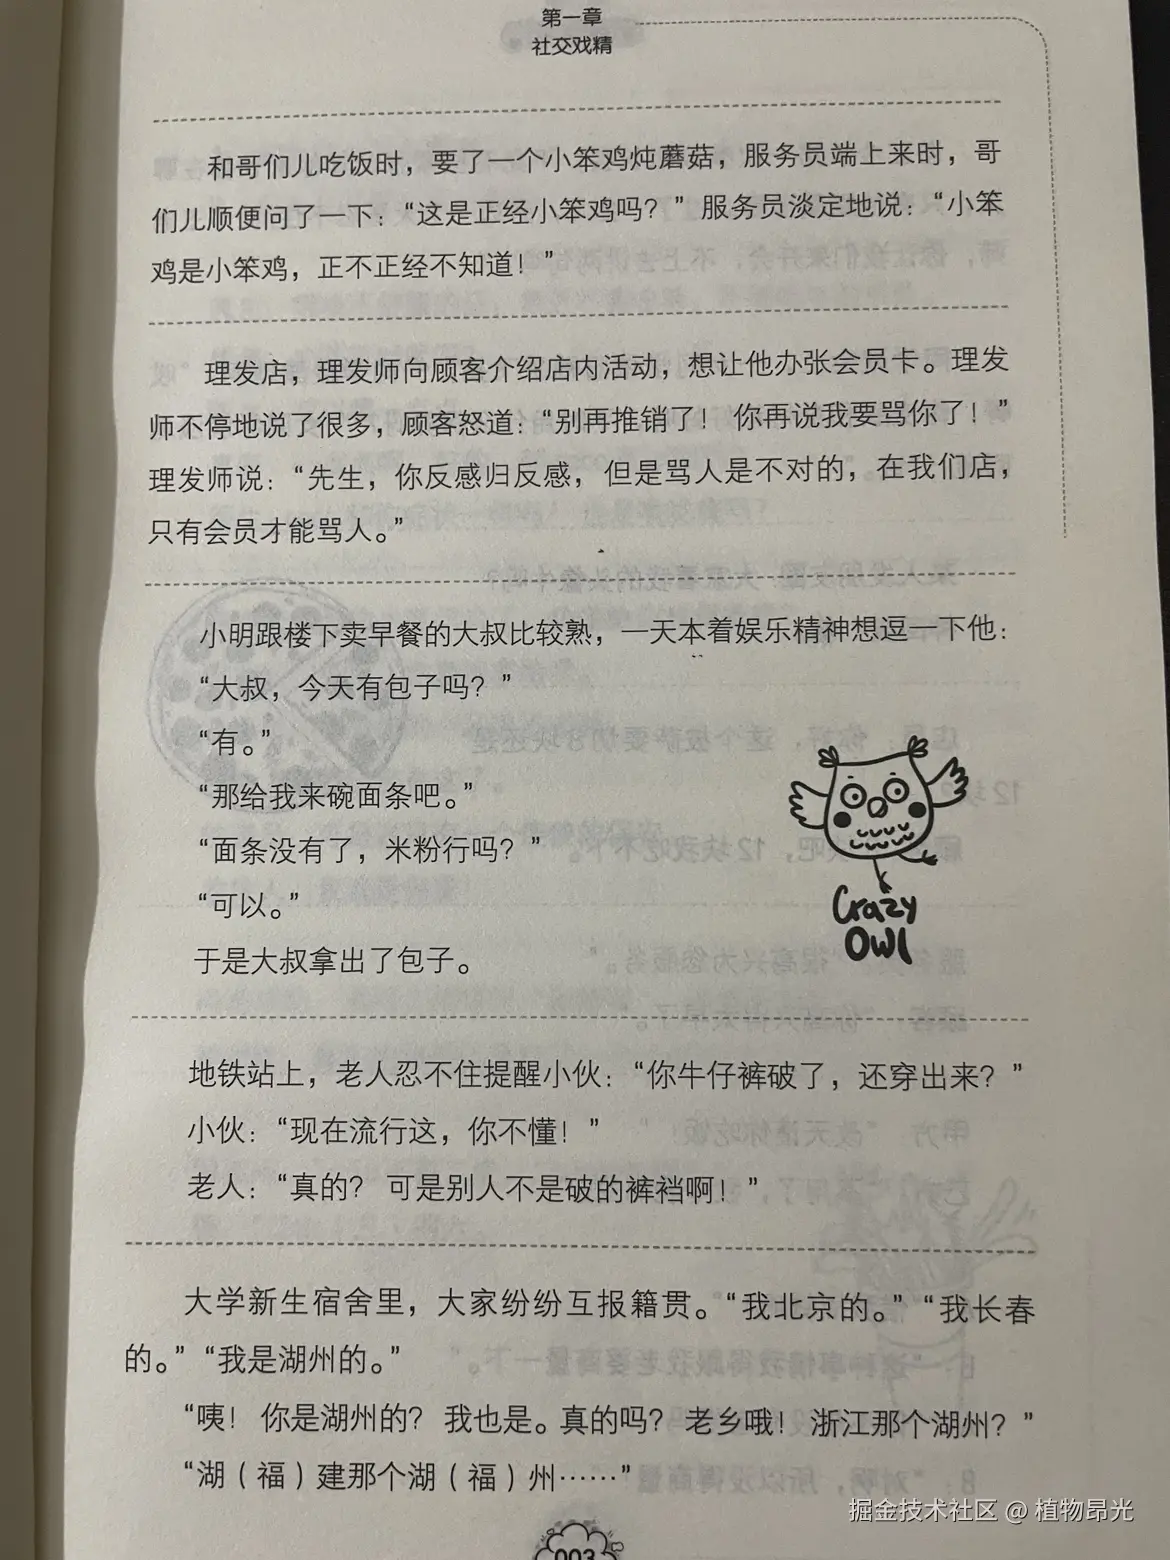 第一章
社交戏精
和哥们儿吃饭时，要了一个小笨鸡炖蘑菇，服务员端上来时，哥
们儿顺便问了一下：“这是正经小笨鸡吗？”服务员淡定地说：“小笨
鸡是小笨鸡，正不正经不知道！”
理发店，理发师向顾客介绍店内活动，想让他办张会员卡。理发
师不停地说了很多，顾客怒道：“别再推销了！你再说我要骂你了！”
理发师说：“先生，你反感归反感，但是骂人是不对的，在我们店，
只有会员才能骂人。”
小明跟楼下卖早餐的大叔比较熟，一天本着娱乐精神想逗一下他：
“大叔，今天有包子吗？”
“有。”
“那给我来碗面条吧。”
“面条没有了，米粉行吗？”
“可以。”
于是大叔拿出了包子。
Crazy
OWl
地铁站上，老人忍不住提醒小伙：“你牛仔裤破了，还穿出来？”
小伙：“现在流行这，你不懂！”
老人：“真的？可是别人不是破的裤裆啊！”
大学新生宿舍里，大家纷纷互报籍贯。“我北京的。”“我长春
的。”“我是湖州的。”
“咦！你是湖州的？我也是。真的吗？老乡哦！浙江那个湖州？”
“湖（福）建那个湖（福）州……”
003
掘金技术社区 @ 植物昂光